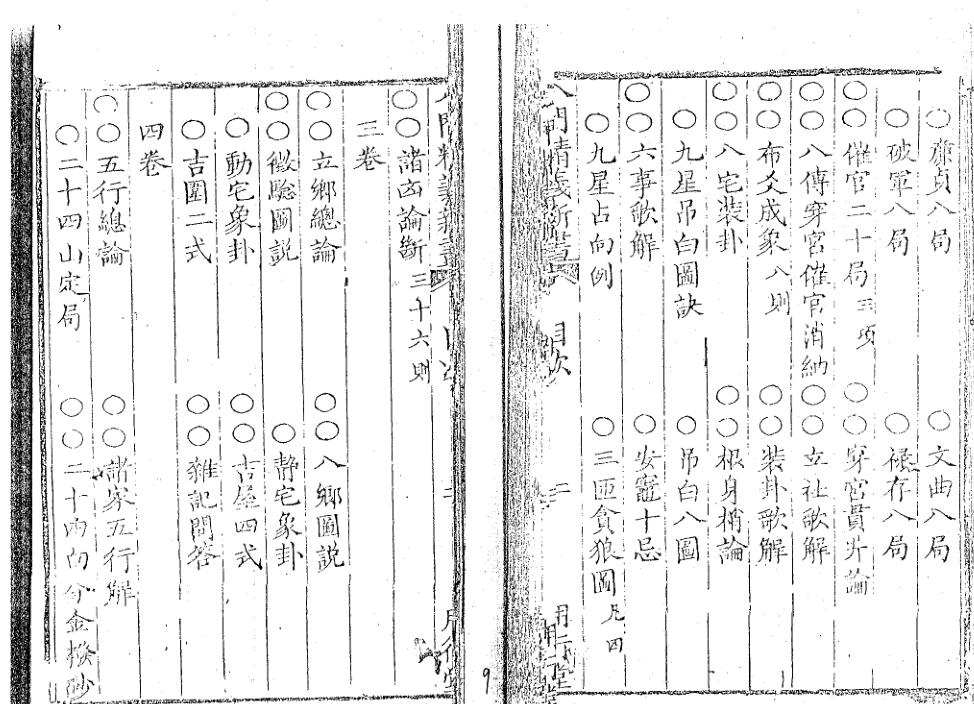 ○廉貞八局 ○文曲八局
○破軍八局 ○祿存八局
○○催官二十局三項 ○○穿宮貫井論
○○八傳穿宮催官消納 ○○立社歌解
○○布爻成象八則 ○○裝卦歌解
○○八宅裝卦 ○○根身梢論
○九星吊白圖訣 ○吊白八圖
○○六事歌解 ○安竈十忌
○九星占向例 ○三匝貪狼圖凡四
目次 二
○○諸凶論斷三十六則
三卷
○○立鄉總論 ○○八鄉圖説
○○徵驗圖説 ○靜宅象卦
○動宅象卦 ○○吉屋四式
○吉圍二式 ○○雜記問答
四卷
○○五行總論 ○○諸家五行解
○二十四山定局 ○○二十四向分金撥砂
9